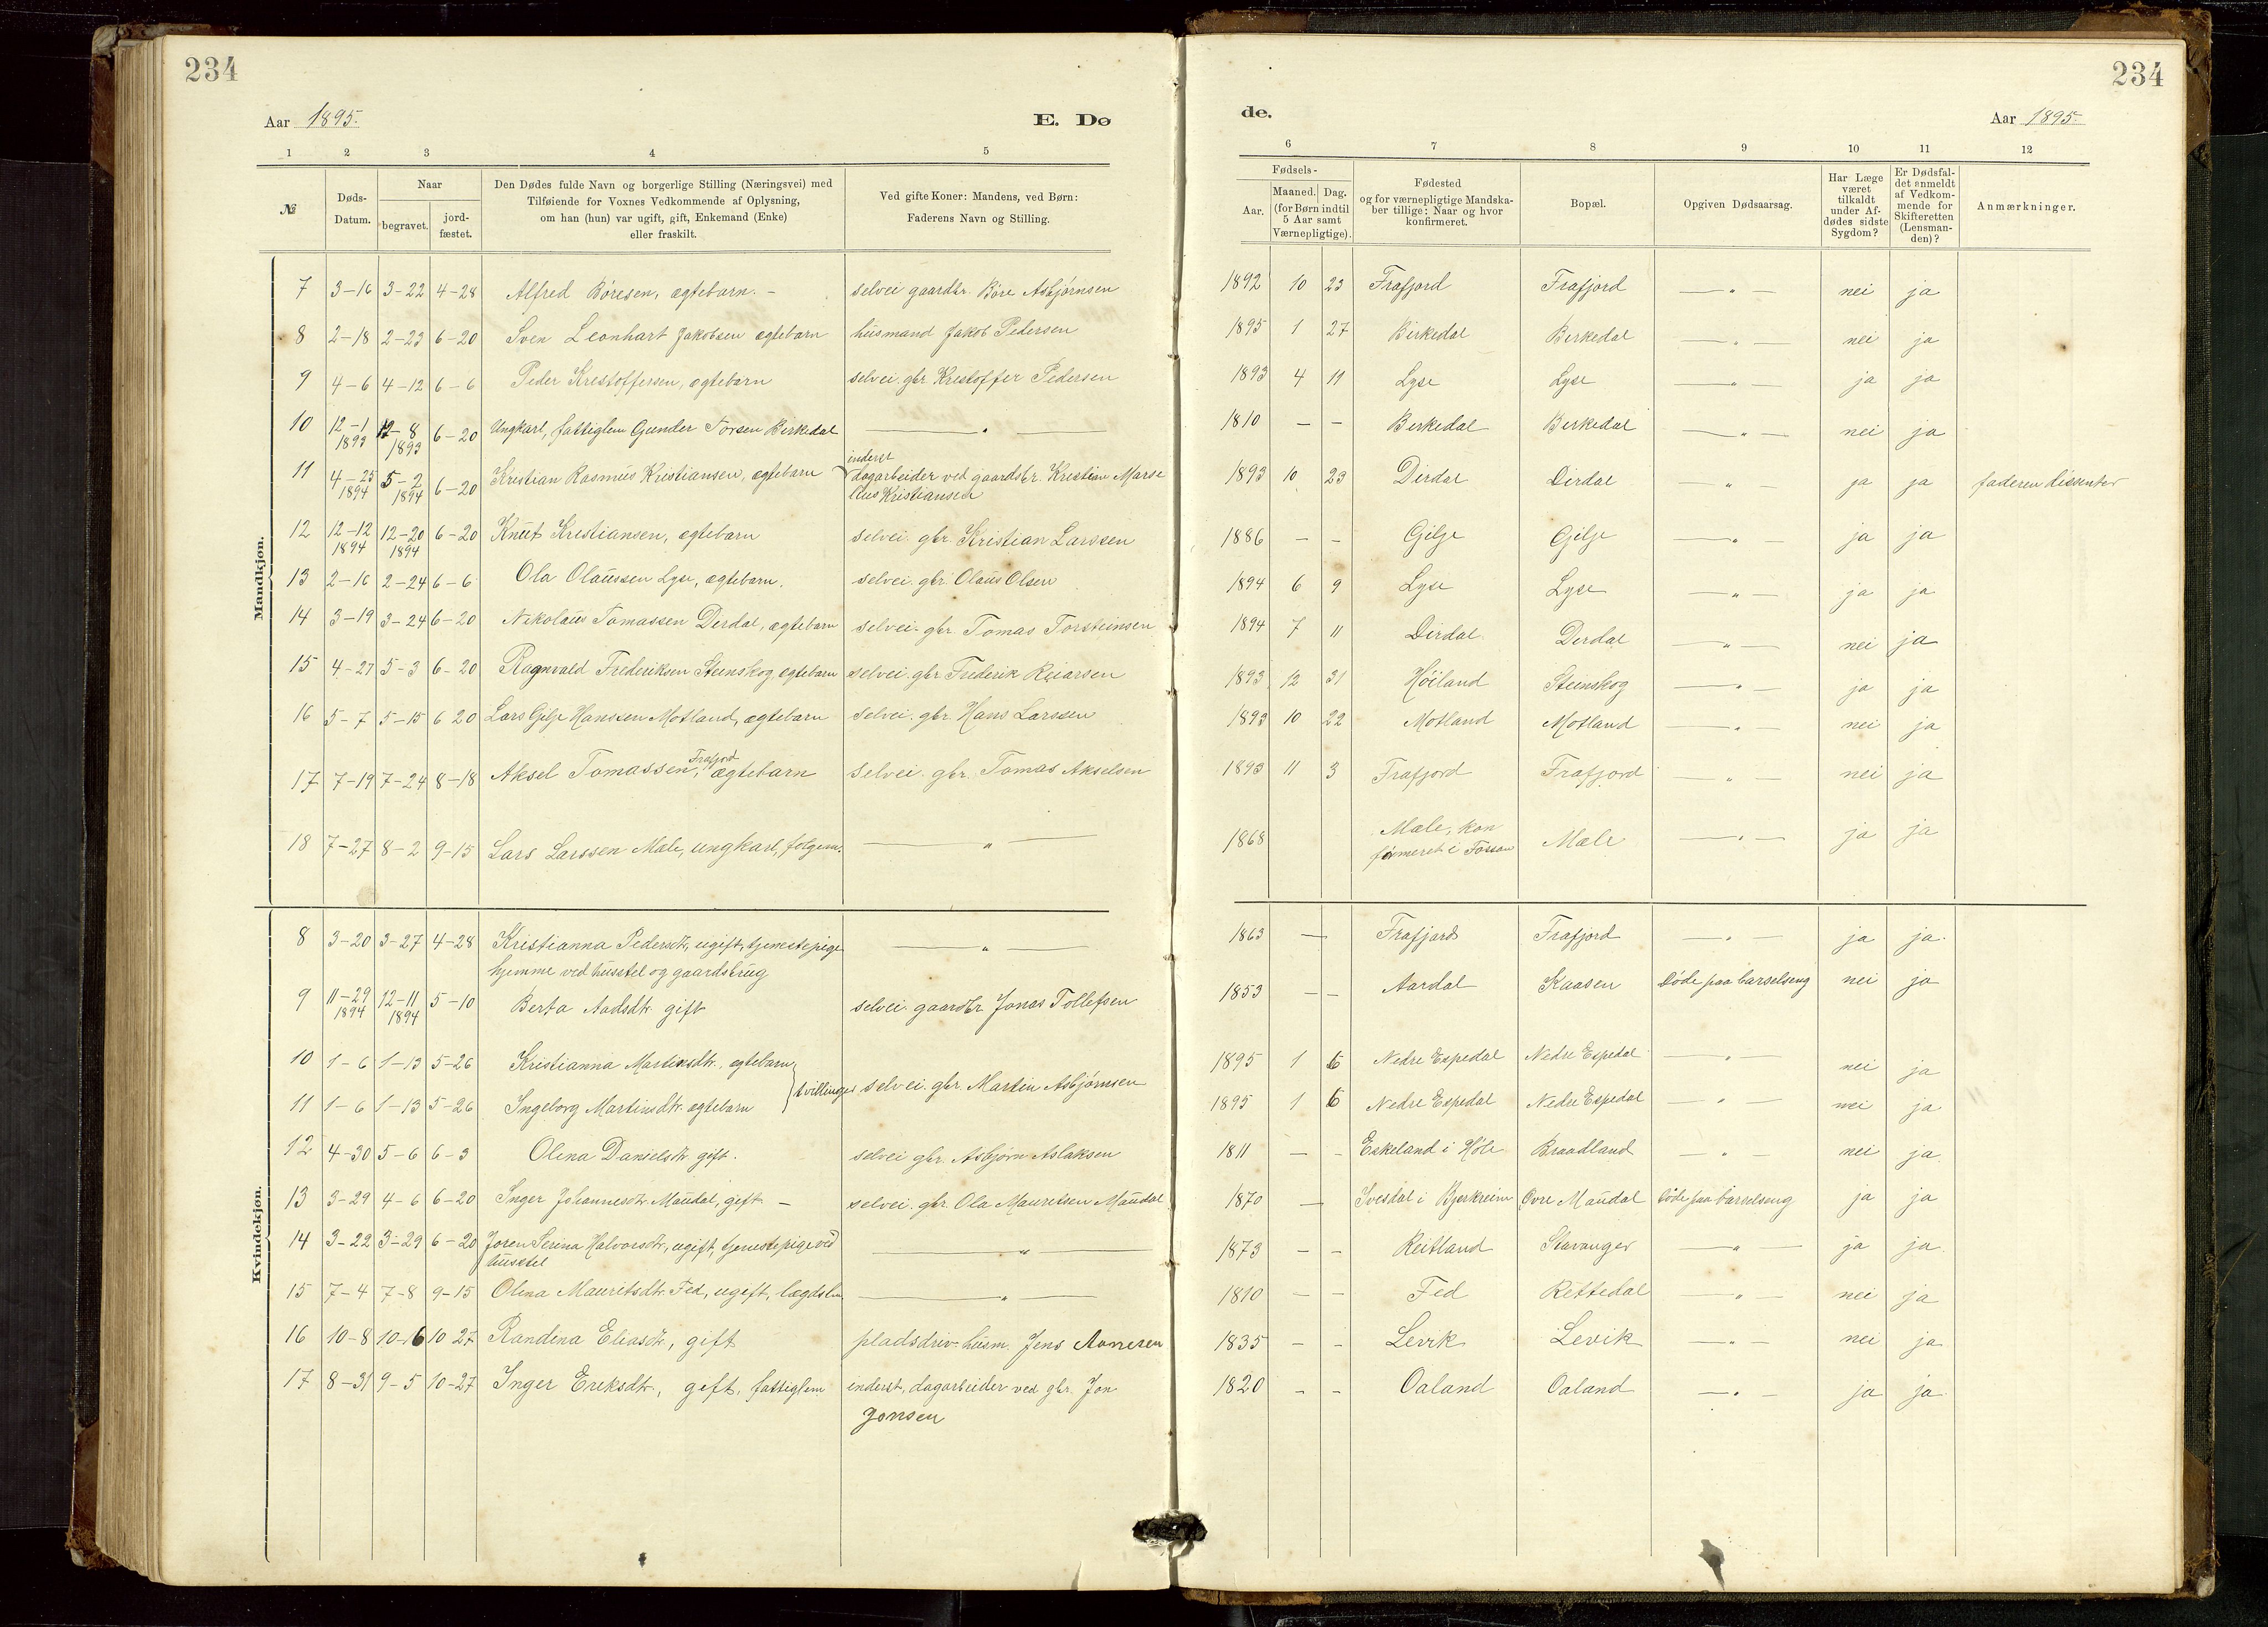 234
234
Aar 1895.
E. Dø
de.
Aar 1895.
1 2 3 4 5
6 7 8 9 10 11 12
№
Døds-Datum.
Naar
begravet.
jord-fæstet.
Den Dødes fulde Navn og borgerlige Stilling (Næringsvei) med
Tilføiende for Voxnes Vedkommende af Oplysning,
om han (hun) var ugift, gift, Enkemand (Enke)
eller fraskilt.
Ved gifte Koner: Mandens, ved Børn:
Faderens Navn og Stilling.
Fødsels-
Aar.
Maaned. Dag.
(for Børn indtil
5 Aar samt
Værnepligtige).
Fødested
og for værnepligtige Mandska-
ber tillige: Naar og hvor
konfirmeret.
Bopæl.
Opgiven Dødsaarsag.
Har Læge
været
tilkaldt
under Af-
dødes sidste
Sygdom?
Er Dødsfal-
det anmeldt
af Vedkom-
mende for
Skifteretten
(Lensman-
den)?
Anmærkninger.
Mandkjøn.
7 3-16 3-22 4-28 Alfred Børesen, ægtebarn. - selvei gaardbr. Børe Asbjørnsen 1892 10 23 Frafjord Frafjord — " — nei ja
8 2-18 2-23 6-20 Sven Leonhart Jakobsen ægtebarn husmand Jakob Pedersen 1895 1 27 Birkedal Birkedal — " — nei ja
9 4-6 4-12 6-6 Peder Kristoffersen, ægtebarn selvei. gbr. Kristoffer Pedersen 1893 4 11 Lyse Lyse — " — ja ja
10 12-1 1893 12-8 1893 6-20 Ungkarl, fattiglem Gunder Torsen Birkedal — " — 1810 - - Birkedal Birkedal — " — nei ja
11 4-25 1894 5-2 1894 6-20 Kristian Rasmus Kristiansen, ægtebarn inderst
dagarbeider ved gaardsbr. Kristian Marse
lius Kristiansen 1893 10 23 Dirdal Dirdal — " — ja ja faderen dissenter
12 12-12 1894 12-20 1894 6-20 Knut Kristiansen, ægtebarn selvei. gbr. Kristian Larssen 1886 - - Gilje Gilje — " — ja ja
13 2-16 2-24 6-6 Ola Olaussen Lyse, ægtebarn. selvei. gbr. Olaus Olsen 1894 6 9 Lyse Lyse — " — ja ja
14 3-19 3-24 6-20 Nikolaus Tomassen Dirdal, ægtebarn selvei. gbr. Tomas Torsteinsen 1894 7 11 Dirdal Dirdal — " — nei ja
15 4-27 5-3 6-20 Ragnvald Frederiksen Steinskog ægtebarn selvei. gbr Frederik Reiarsen 1893 12 31 Høiland Steinskog — " — ja ja
16 5-7 5-15 6 20 Lars Gilje Hanssen Motland, ægtebarn selvei. gbr. Hans Larssen 1893 10 22 Motland Motland — " — nei ja
17 7-19 7-24 8-18 Aksel Tomassen Frafjord, ægtebarn selvei. gbr. Tomas Akselsen 1893 11 3 Frafjord Frafjord — " — nei ja
18 7-27 8-2 9-15 Lars Larssen Mæle, ungkarl, følgem. — " — 1868 Mæle, kon
firmeret i Fossan Mæle — " — ja ja
Kvindekjøn.
8 3-20 3-27 4-28 Kristianna Pedersdtr, ugift, tjenestepige
hjemme ved husstel og gaardsbrug — " — 1863 — Frafjord Frafjord — " — ja ja.
9 11-29 1894 12-11 1894 5-10 Berta Aadsdtr. gift selvei. gaardbr Jonas Tollefsen 1853 - - Aardal Kaasen Døde paa barselseng nei ja
10 1-6 1-13 5-26 Kristianna Martinsdtr., ægtebarn 1895 1 6 Nedre Espedal Nedre Espedal — " — nei ja
tvillinger selvei. gbr. Martin Asbjørnsen
11 1-6 1-13 5-26 Ingeborg Martinsdtr. ægtebarn 1895 1 6 Nedre Espedal Nedre Espedal — " — nei ja
12 4-30 5-6 6-3 Olena Danielsdtr. gift. selvei gbr. Asbjørn Aslaksen 1811 - - Eskeland i Høle Braadland — " — nei ja.
13 3-29 4-6 6-20 Inger Johannesdtr. Maudal, gift. - selvei. gbr. Ola Mauritsen Maudal 1870 — Ivesdal i Bjerkreim Øvre Maudal Døde paa barselseng ja ja
14 3-22 3-29 6-20 Joren Serina Halvorsdtr, ugift, tjenestepige ved
husstel — " — 1873 - - Reitland Stavanger — " — ja ja.
15 7-4 7-8 9-15 Olena Mauritsdtr. Fed, ugift, lægdslem — " — 1810 - - Fed Rettedal — " — nei ja
16 10-8 10-16 10 27 Randena Eliasdtr, gift pladsdriv. husm. Jens 1835 - - Levik Levik — " — nei ja
17 8-31 9-5 10-27 Inger Eriksdtr., gift, fattiglem inderst, dagarbeider ved gbr. Jon
Jonsen 1820 - - Oaland Oaland — " — ja ja